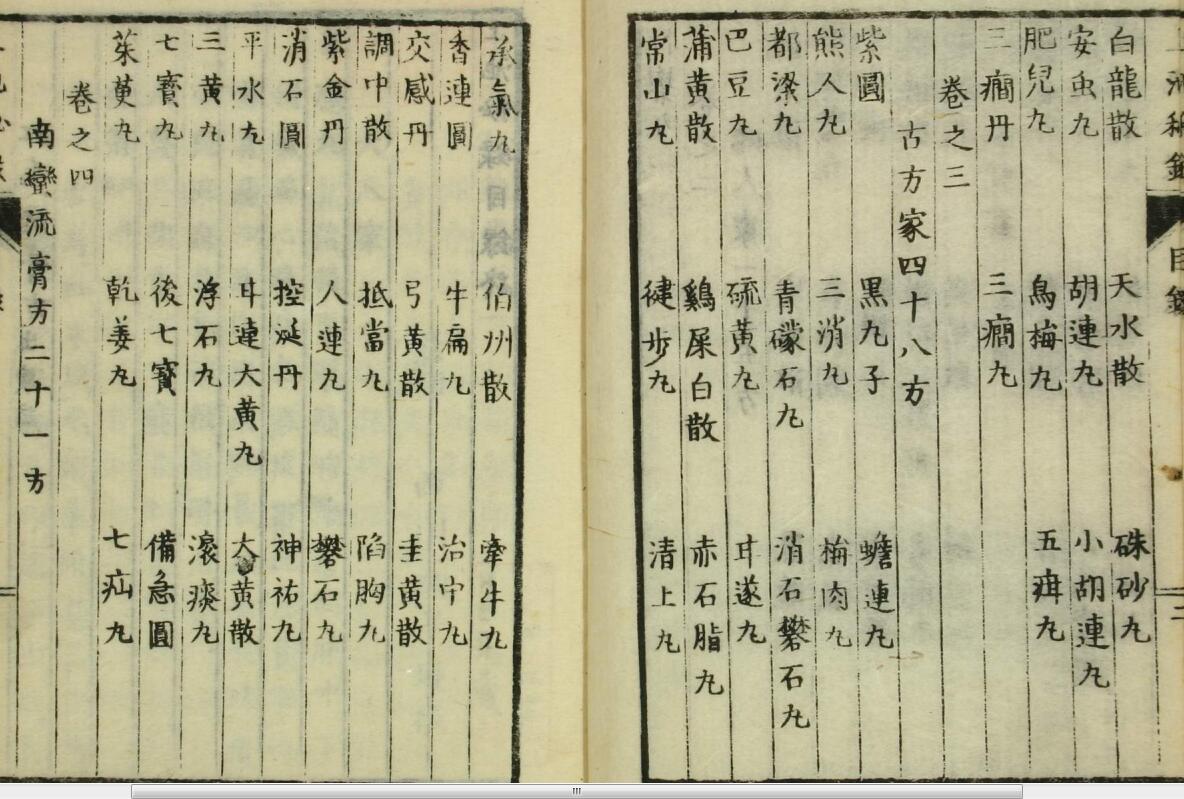 目錄
白龍散 天水散 硃砂丸
安虫丸 胡連丸 小胡連丸
肥兒丸 烏梅丸 五疳丸
三癇丹 三癇丸
卷之三
古方家四十八方
紫圓 黒丸子 蟾連丸
熊人丸 三消丸 梅肉丸
都梁丸 青礞石丸 消石礬石丸
巴豆丸 硫黄丸 甘遂丸
蒲黄散 鷄屎白散 赤石脂丸
常山丸 健步丸 清上丸
承氣丸 伯州散 牽牛丸
香連圓 牛扁丸 治中丸
交感丹 弓黄散 圭黄散
調中散 抵當丸 陷胸丸
紫金丹 人連丸 礬石丸
消石圓 控涎丹 神祐丸
平水丸 甘連大黄丸 大黄散
三黄丸 浮石丸 滾痰丸
七寶丸 後七寳 備急圓
茱萸丸 乾姜丸 七疝丸
卷之四
南蠻流膏方二十一方